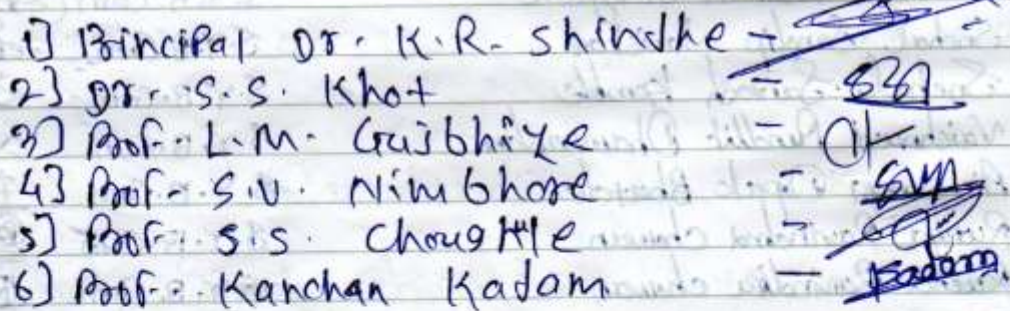 1] Principal Dr. K.R. Shindhe -
2] Dr. S.S. Khot -
3] Prof. L.M. Gaibhiye -
4] Prof. S.V. Nimbhore -
5] Prof. S.S. Chougule -
6] Prof. Kanchan Kadam - Kadam